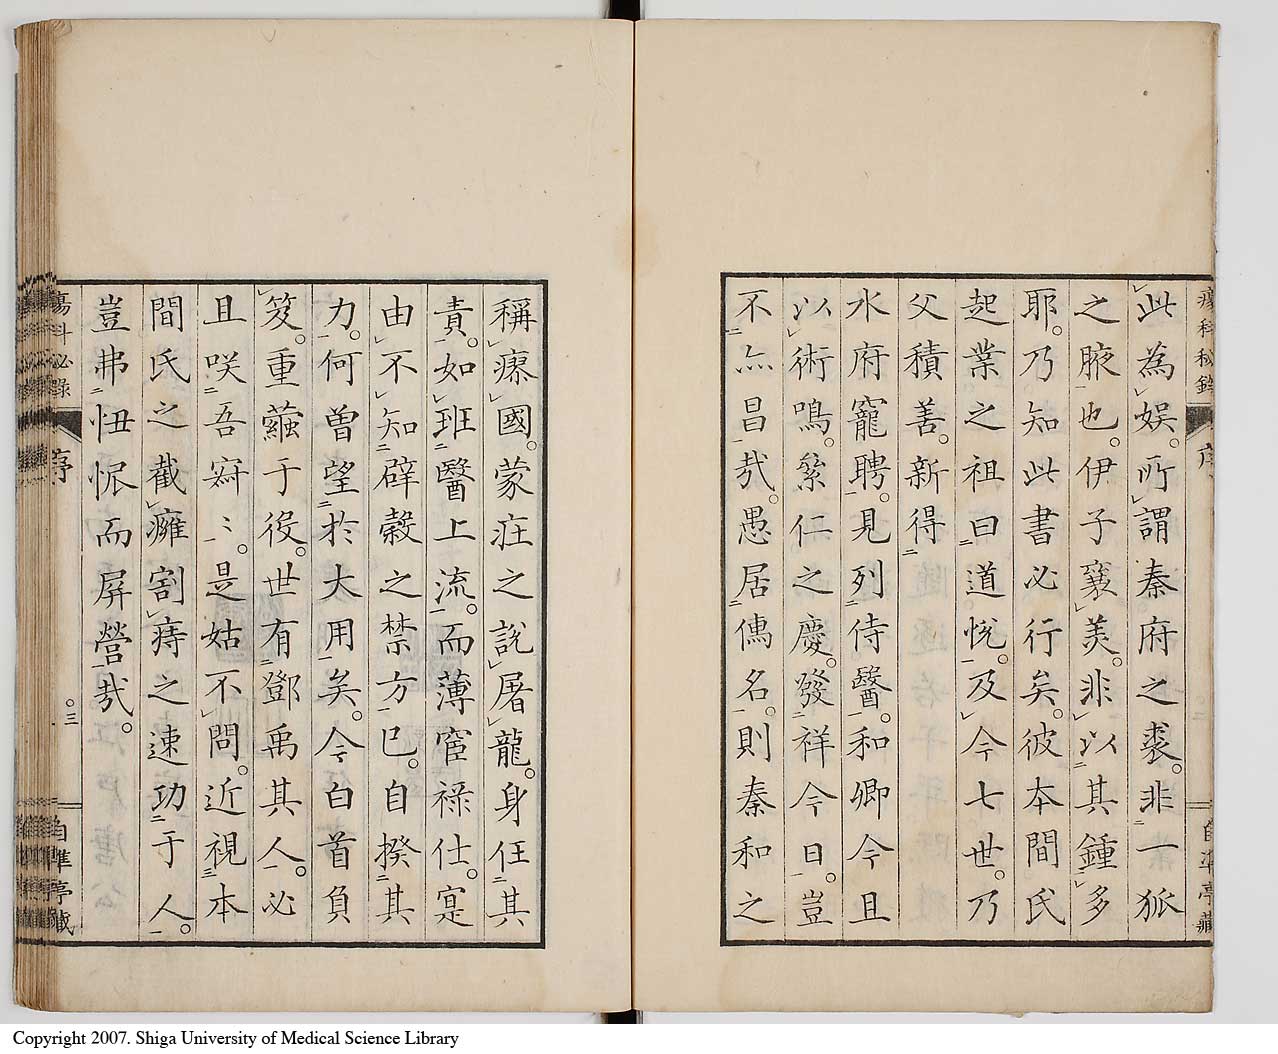 瘍科秘錄
序
自準亭藏
此為娯。所謂秦府之裘。非一狐
之腋也。伊子襄美。非以其鍾多
耶。乃知此書必行矣。彼本間氏
起業之祖曰道悅。及今七世。乃
父積善。新得
水府寵聘。見列侍醫。和卿今且
以術鳴。絫仁之慶。發祥今日。豈
不亦昌哉。愚居傳名。則秦和之
稱瘵國。蒙莊之說屠龍。身任其
責。如班醫上流。而薄宦祿仕。寔
由不知辟穀之禁方已。自揆其
力。何曽望於大用矣。今白首負
笈。重繭于役。世有鄧禹其人。必
且咲吾寂〻。是姑不問。近視本
間氏之截癰割痔之速功于人。
豈弗忸怩而屏營哉。
瘍科秘錄
序
三
自準亭藏
Copyright 2007. Shiga University of Medical Science Library